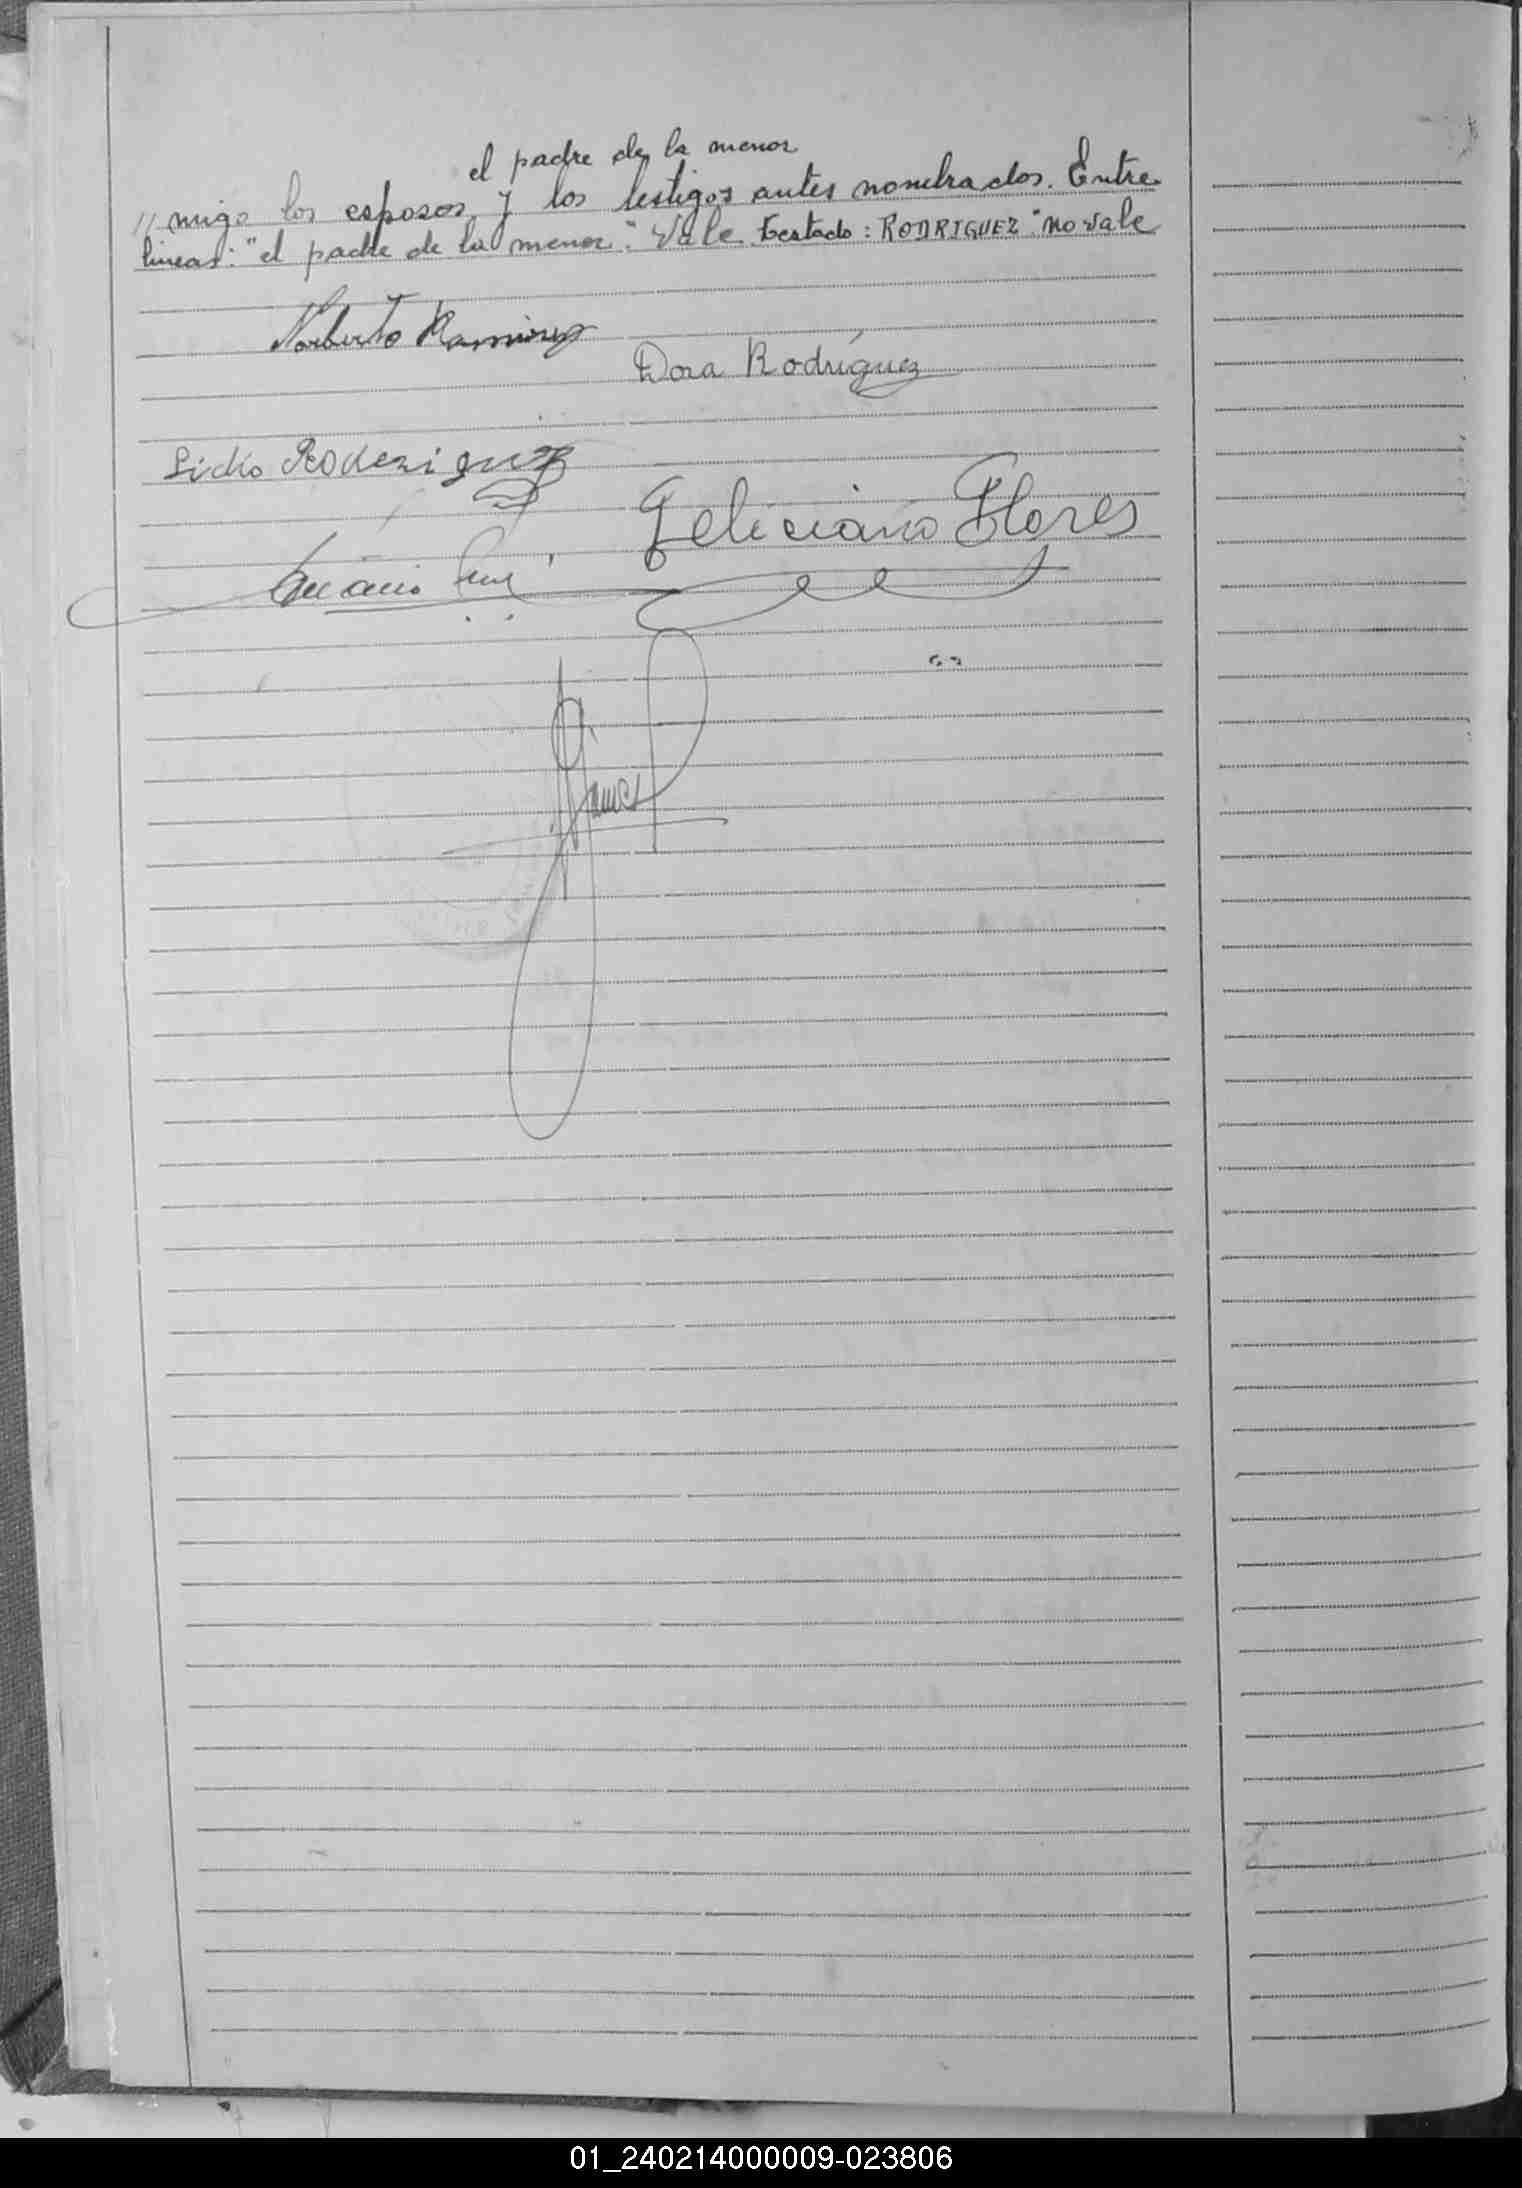 el padre de la menor
// migo los esposos, y los testigos antes nombrados. Entre
lineas: "el padre de la menor": Vale. Testado: RODRIGUEZ "no vale
Norberto Ramirez
Dora Rodríguez
Lidio Roderiguez
Feliciano Flores
01_240214000009-023806